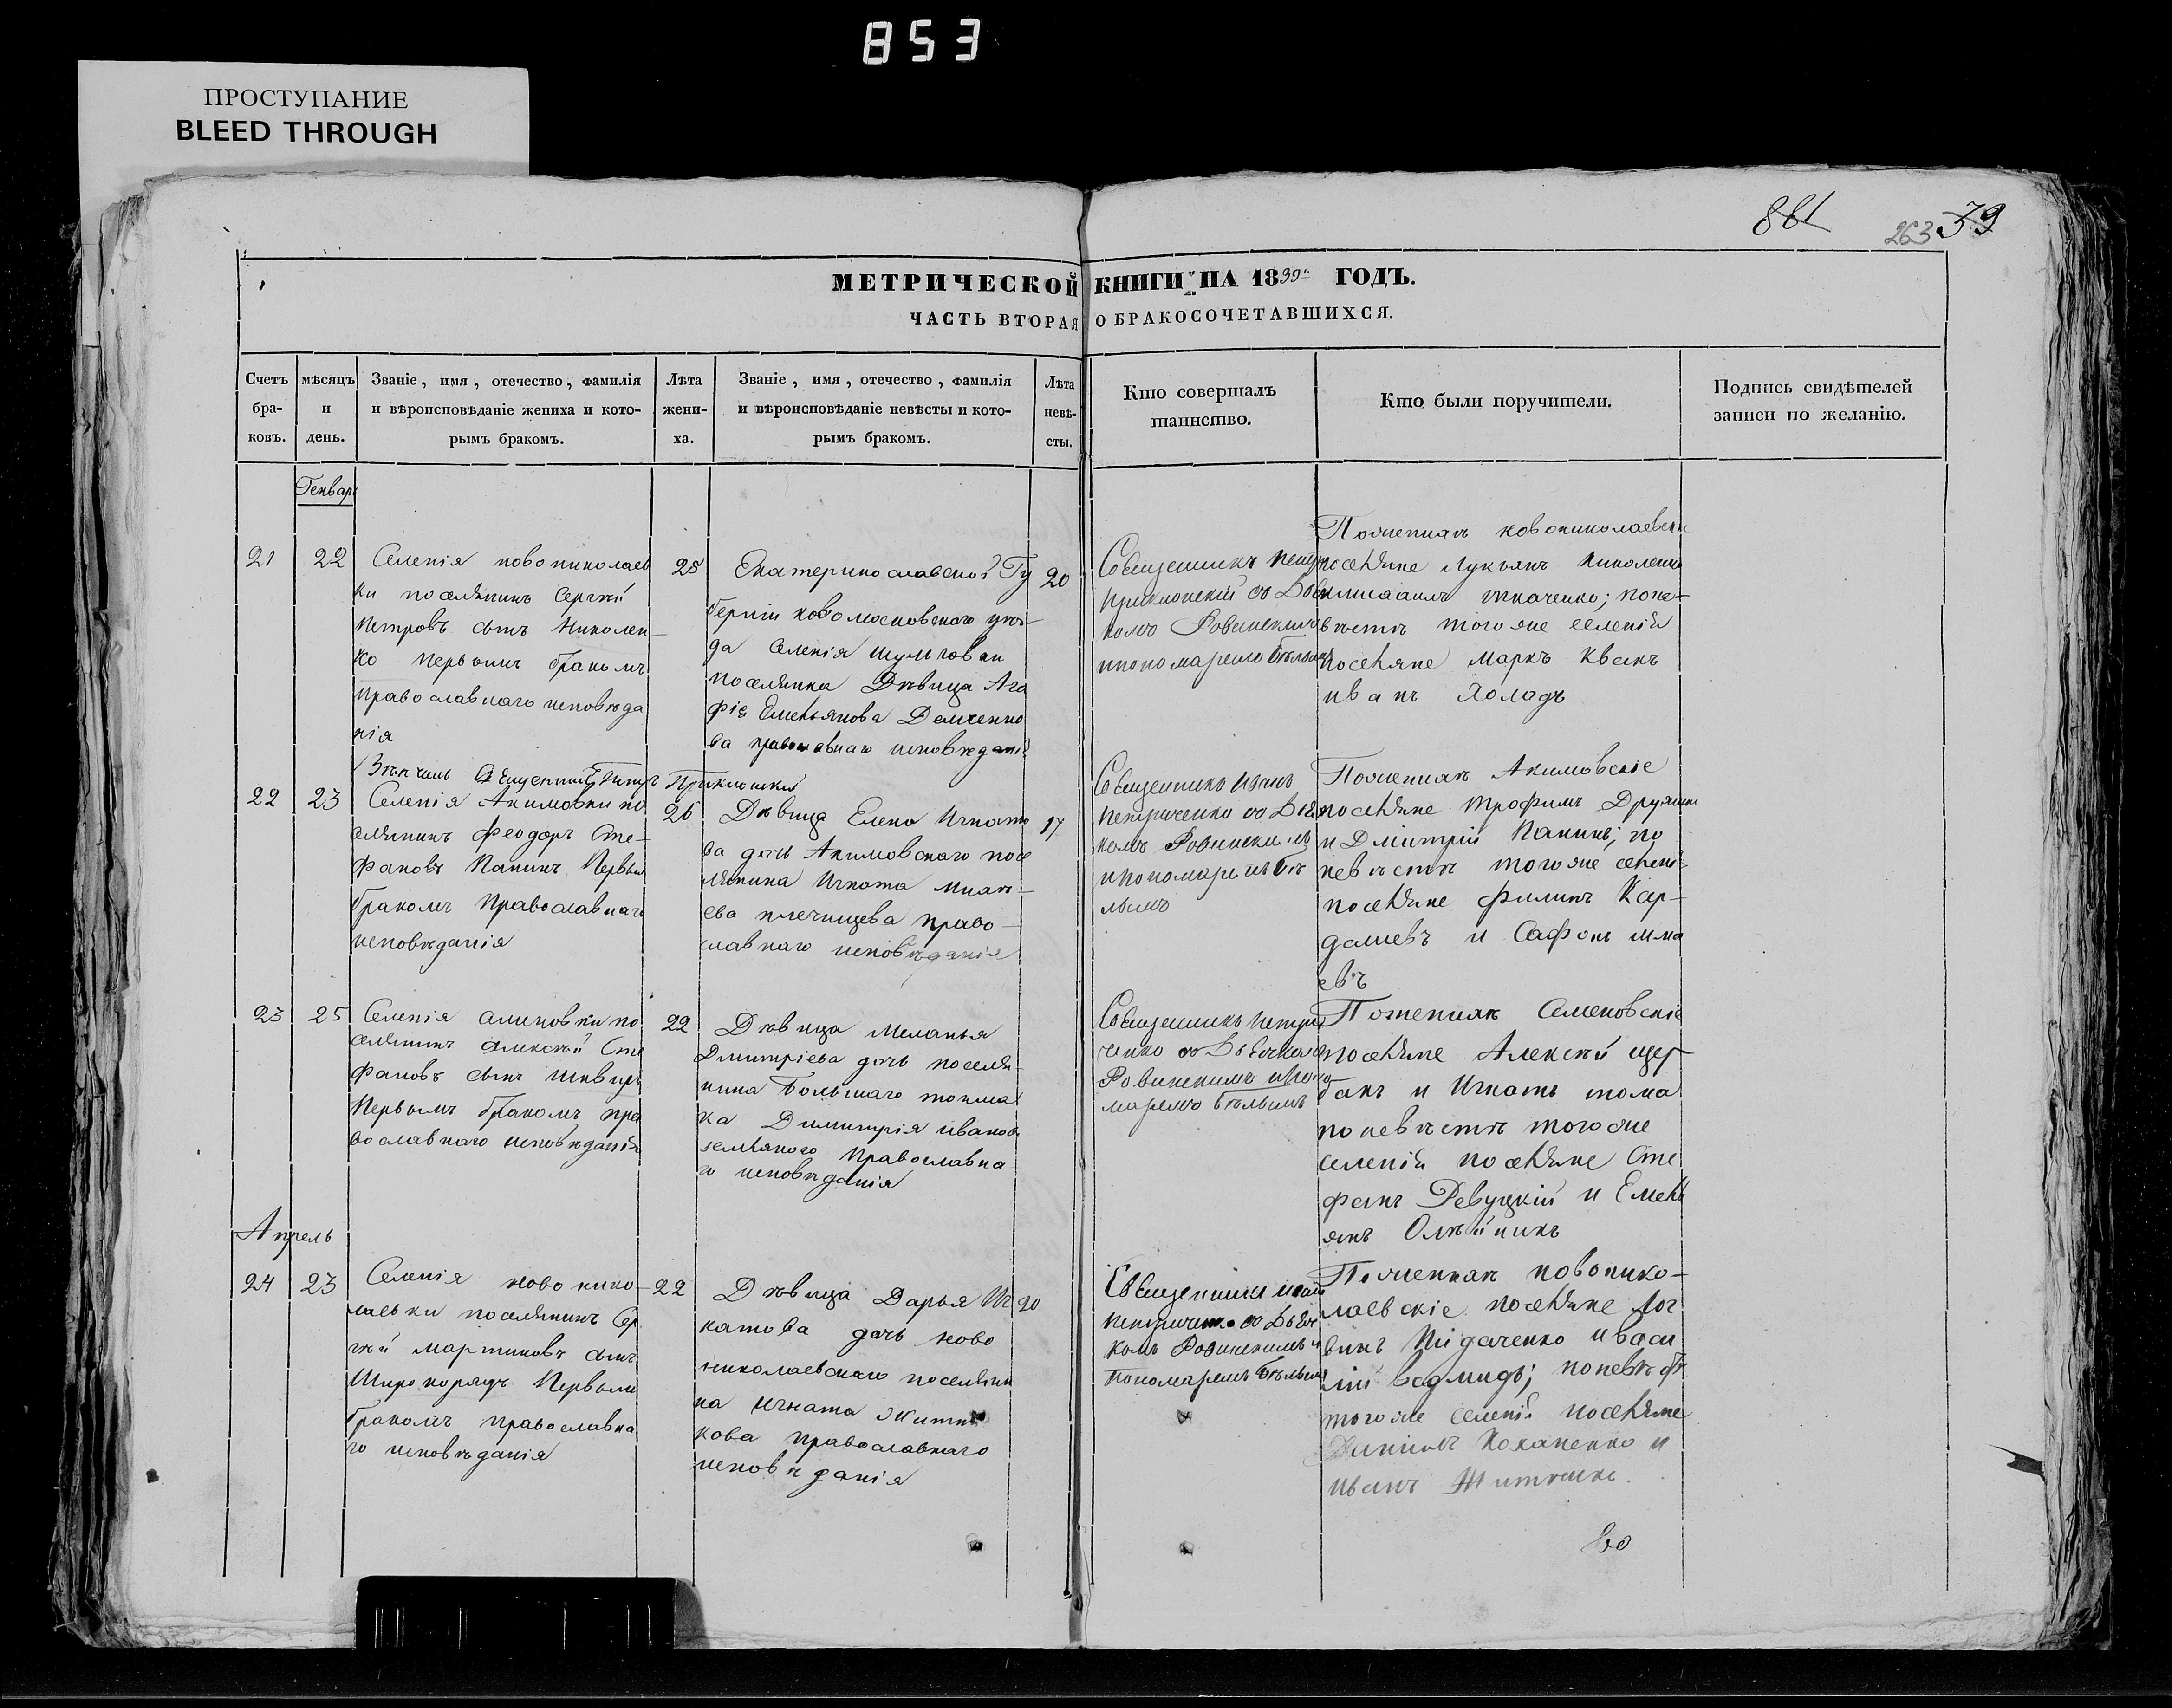 853
ПРОСТУПАНИЕ
BLEED THROUGH
861 263 39
МЕТРИЧЕСКОЙ КНИГИ НА 1839 ГОДЪ.
ЧАСТЬ ВТОРАЯ О БРАКОСОЧЕТАВШИХСЯ.
Счетъ
бра-
ковъ.
мѣсяцъ
и
день.
Званіе, имя, отечество, фамилія
и вѣроисповѣданіе жениха и кото-
рымъ бракомъ.
Лѣта
жени-
ха.
Званіе, имя, отечество, фамилія
и вѣроисповѣданіе невѣсты и кото-
рымъ бракомъ.
Лѣта
невѣ-
сты.
Кто совершалъ
таинство.
Кто были поручители.
Подпись свидѣтелей
записи по желанію.
Генварь
21
22
Селенія новониколаев
ки поселянинъ Сергѣй
Петровъ сынъ Николен-
ко первымъ бракомъ
православнаго исповѣда
нія
Вѣнчалъ Священникъ Петръ Приклонскій
25
Екатеринославской Гу
берніи новомосковскаго уѣз-
да селенія шульговки
поселянка Дѣвица Ага
фія Емельянова Демченко
ва православнаго исповѣданія
20
Священникъ Петръ
Приклонскій съ Дьяч
комъ Ровинскимъ
и пономаремъ Бѣлымъ
По женихѣ новониколаевскіе
поселяне Лукьянъ Николенко
ткаченко; по не-
вѣстѣ того же селенія
поселяне Маркъ Квакъ
иванъ Холодъ
22
23
Селенія Акимовки по
селянинъ Феодоръ Сте-
фановъ Панинъ Первымъ
бракомъ Православнаго
исповѣданія
26
Дѣвица Елена Игнато
ва дочь Акимовскаго посе
лянина Игната
ева плечищева право-
славнаго исповѣданія
17
Священникъ Иванъ
Петриченко съ Дьяч
комъ Ровинскимъ
и пономаремъ Бѣ
лымъ
По женихѣ Акимовскіе
поселяне Трофимъ
и Дмитрій Панинъ; по
невѣстѣ того же селенія
поселяне Филипъ Кар-
дашевъ и Сафонъ
евъ
23
25
поселянинъ Алексѣй Сте
фановъ сынъ
Первымъ бракомъ пра
вославнаго исповѣданія
22
Дѣвица Меланья
Дмитріева дочь поселя
нина Большаго токма
ка Димитрія иванова
земляного Православна
го исповѣданія
Священникъ Петри
ченко съ Дьячкомъ
Ровинскимъ и поно
маремъ Бѣлымъ
По женихѣ Семеновскіе
поселяне Алексѣй щер
бакъ и Игнатъ тома
по невѣстѣ того же
селенія поселяне Сте
фанъ Ревуцкій и Емель
янъ Олѣйникъ
Апрель
24
23
Селенія новонико-
лаевки поселянинъ Сер
гѣй Мартиновъ сынъ
Широкорядъ Первымъ
бракомъ православна
го исповѣданія
22
Дѣвица Дарья Иг
натова дочь ново
николаевскаго поселяни
на Игната Житни
кова православнаго
исповѣданія
20
Священникъ иванъ
Петриченко съ Дьяч
комъ Ровинскимъ и
Пономаремъ Бѣлымъ
По женихѣ новонико-
лаевскіе поселяне Лог
винъ Підаченко и васи
лій ведмидь; по невѣстѣ
того же селенія поселяне
Коханенко и
иванъ